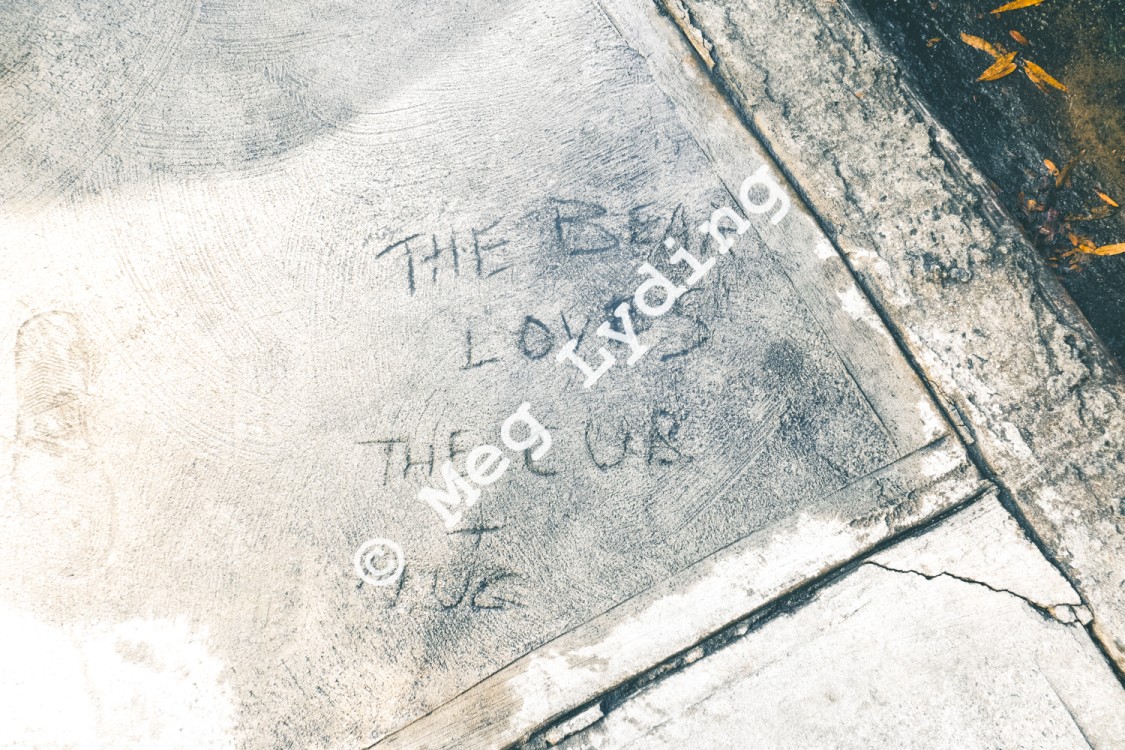 THE BEAR
LOVES
THE CUB
+
© Meg Lyding